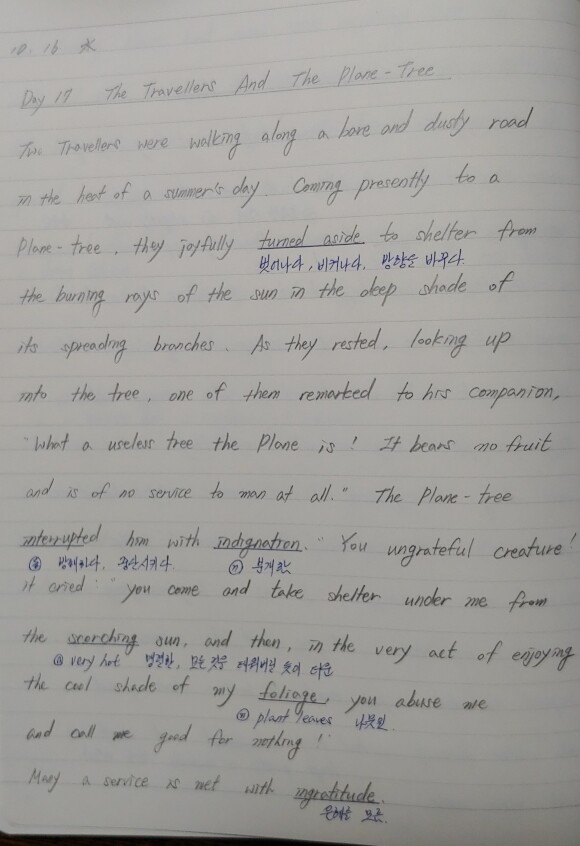 10. 16 水
Day 17 The Travellers And The Plane-Tree
Two Travellers were walking along a bare and dusty road
in the heat of a summer's day. Coming presently to a
Plane-tree, they joyfully turned aside to shelter from
벗어나다, 비켜나다, 방향을 바꾸다.
the burning rays of the sun in the deep shade of
its spreading branches. As they rested, looking up
into the tree, one of them remarked to his companion,
"What a useless tree the Plane is! It bears no fruit
and is of no service to man at all." The Plane-tree
interrupted him with indignation. "You ungrateful creature!
방해하다, 중단시키다. ⓝ 분개함
it cried: "you come and take shelter under me from
the scorching sun, and then, in the very act of enjoying
ⓐ very hot 맹렬한, 모든 것을 태워버릴 듯이 더운
the cool shade of my foliage, you abuse me
ⓝ plant leaves 나뭇잎.
and call me good for nothing!"
Many a service is met with ingratitude.
은혜를 모름.